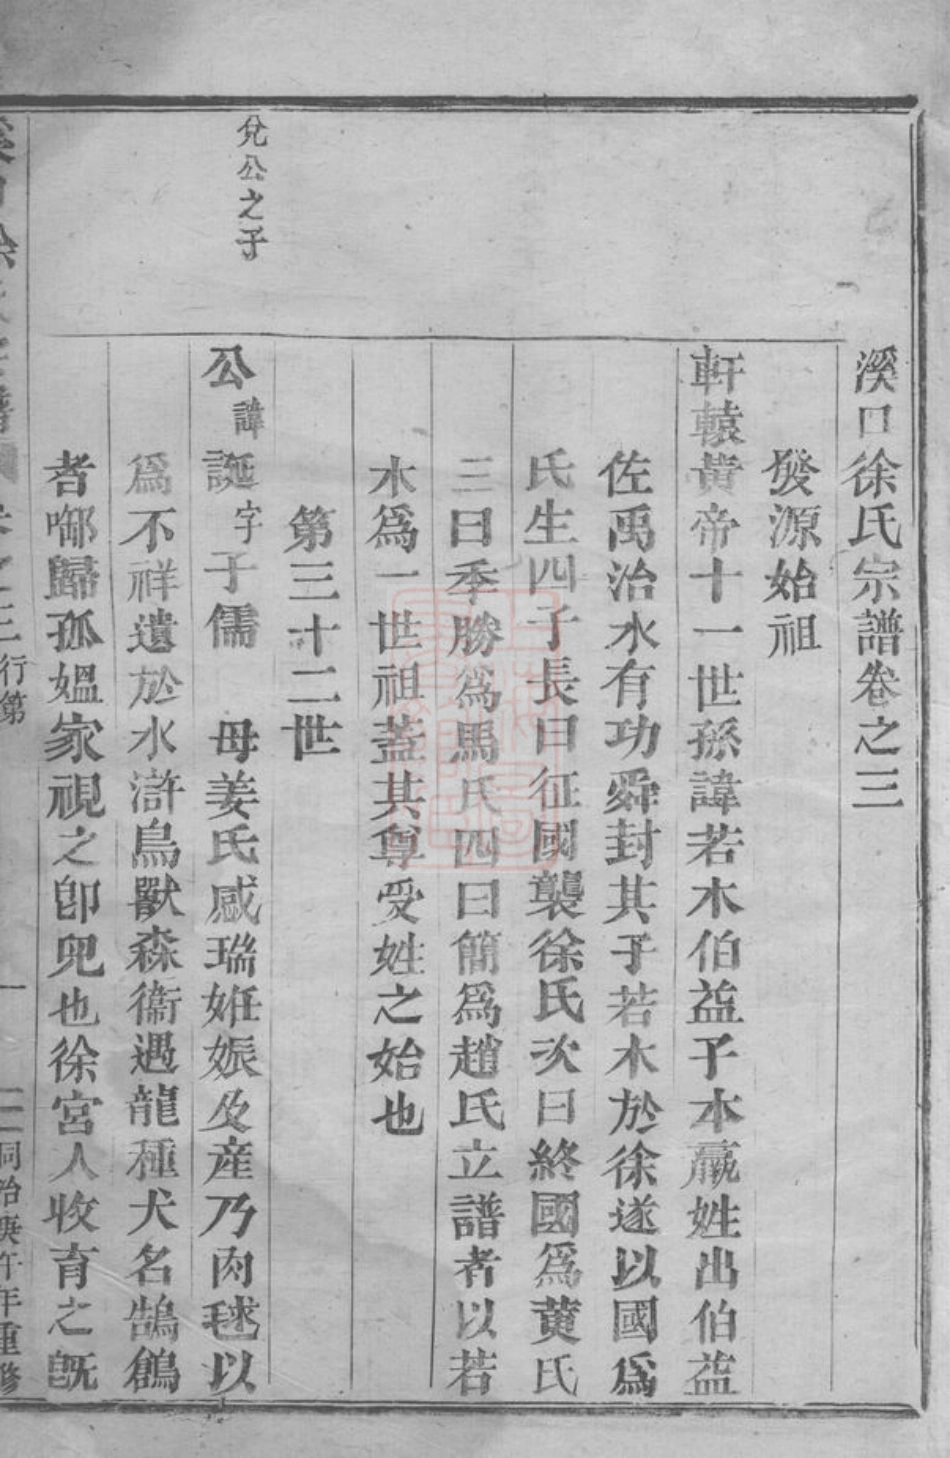 溪口徐氏宗譜卷之三
發源始祖
軒轅黃帝十一世孫諱若木伯益子本嬴姓出伯益
佐禹治水有功舜封其子若木於徐遂以國爲
氏生四子長曰征國襲徐氏次曰終國爲黃氏
三曰季勝爲馬氏四曰簡爲趙氏立譜者以若
木爲一世祖蓋其尊受姓之始也
第三十二世
兌公之子
公諱誕字子儒 母姜氏感瑞姙娠及産乃肉毬以
爲不祥遺於水滸鳥獸森衞遇龍種犬名鵠鶬
者啣歸孤媼家視之卽兒也徐宮人收育之既
溪口徐氏宗譜 卷之三 行第 一 同治庚午年重修